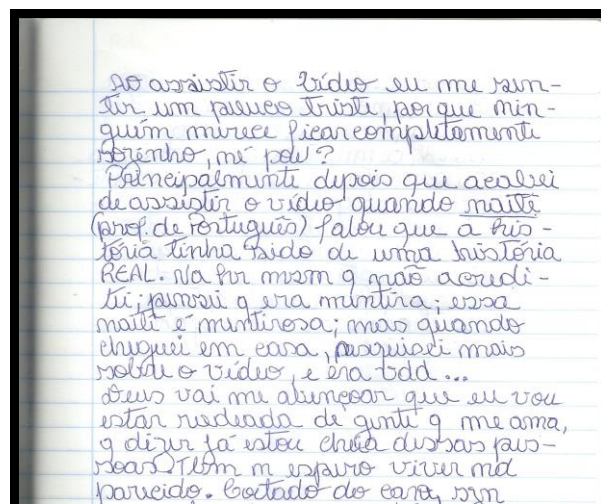 Ao assistir o vídeo eu me sen-
tir um pouco triste, porque nin-
guém merece ficar completamente
sozinho, né pow?
Principalmente depois que acabei
de assistir o vídeo quando naiti
(prof. de Português) falou que a his-
tória tinha sido de uma história
REAL. Na hr msm q não acredi-
tei; pensei q era mentira; essa
naiti é mentirosa; mas quando
cheguei em casa, pesquisei mais
sobre o vídeo, e era vdd...
Deus vai me abençoar que eu vou
estar rodeada de gente q me ama,
q dizer já estou cheia dessas pes-
soas. Tbm m espero viver nd
parecido. Coitado do cara, sem